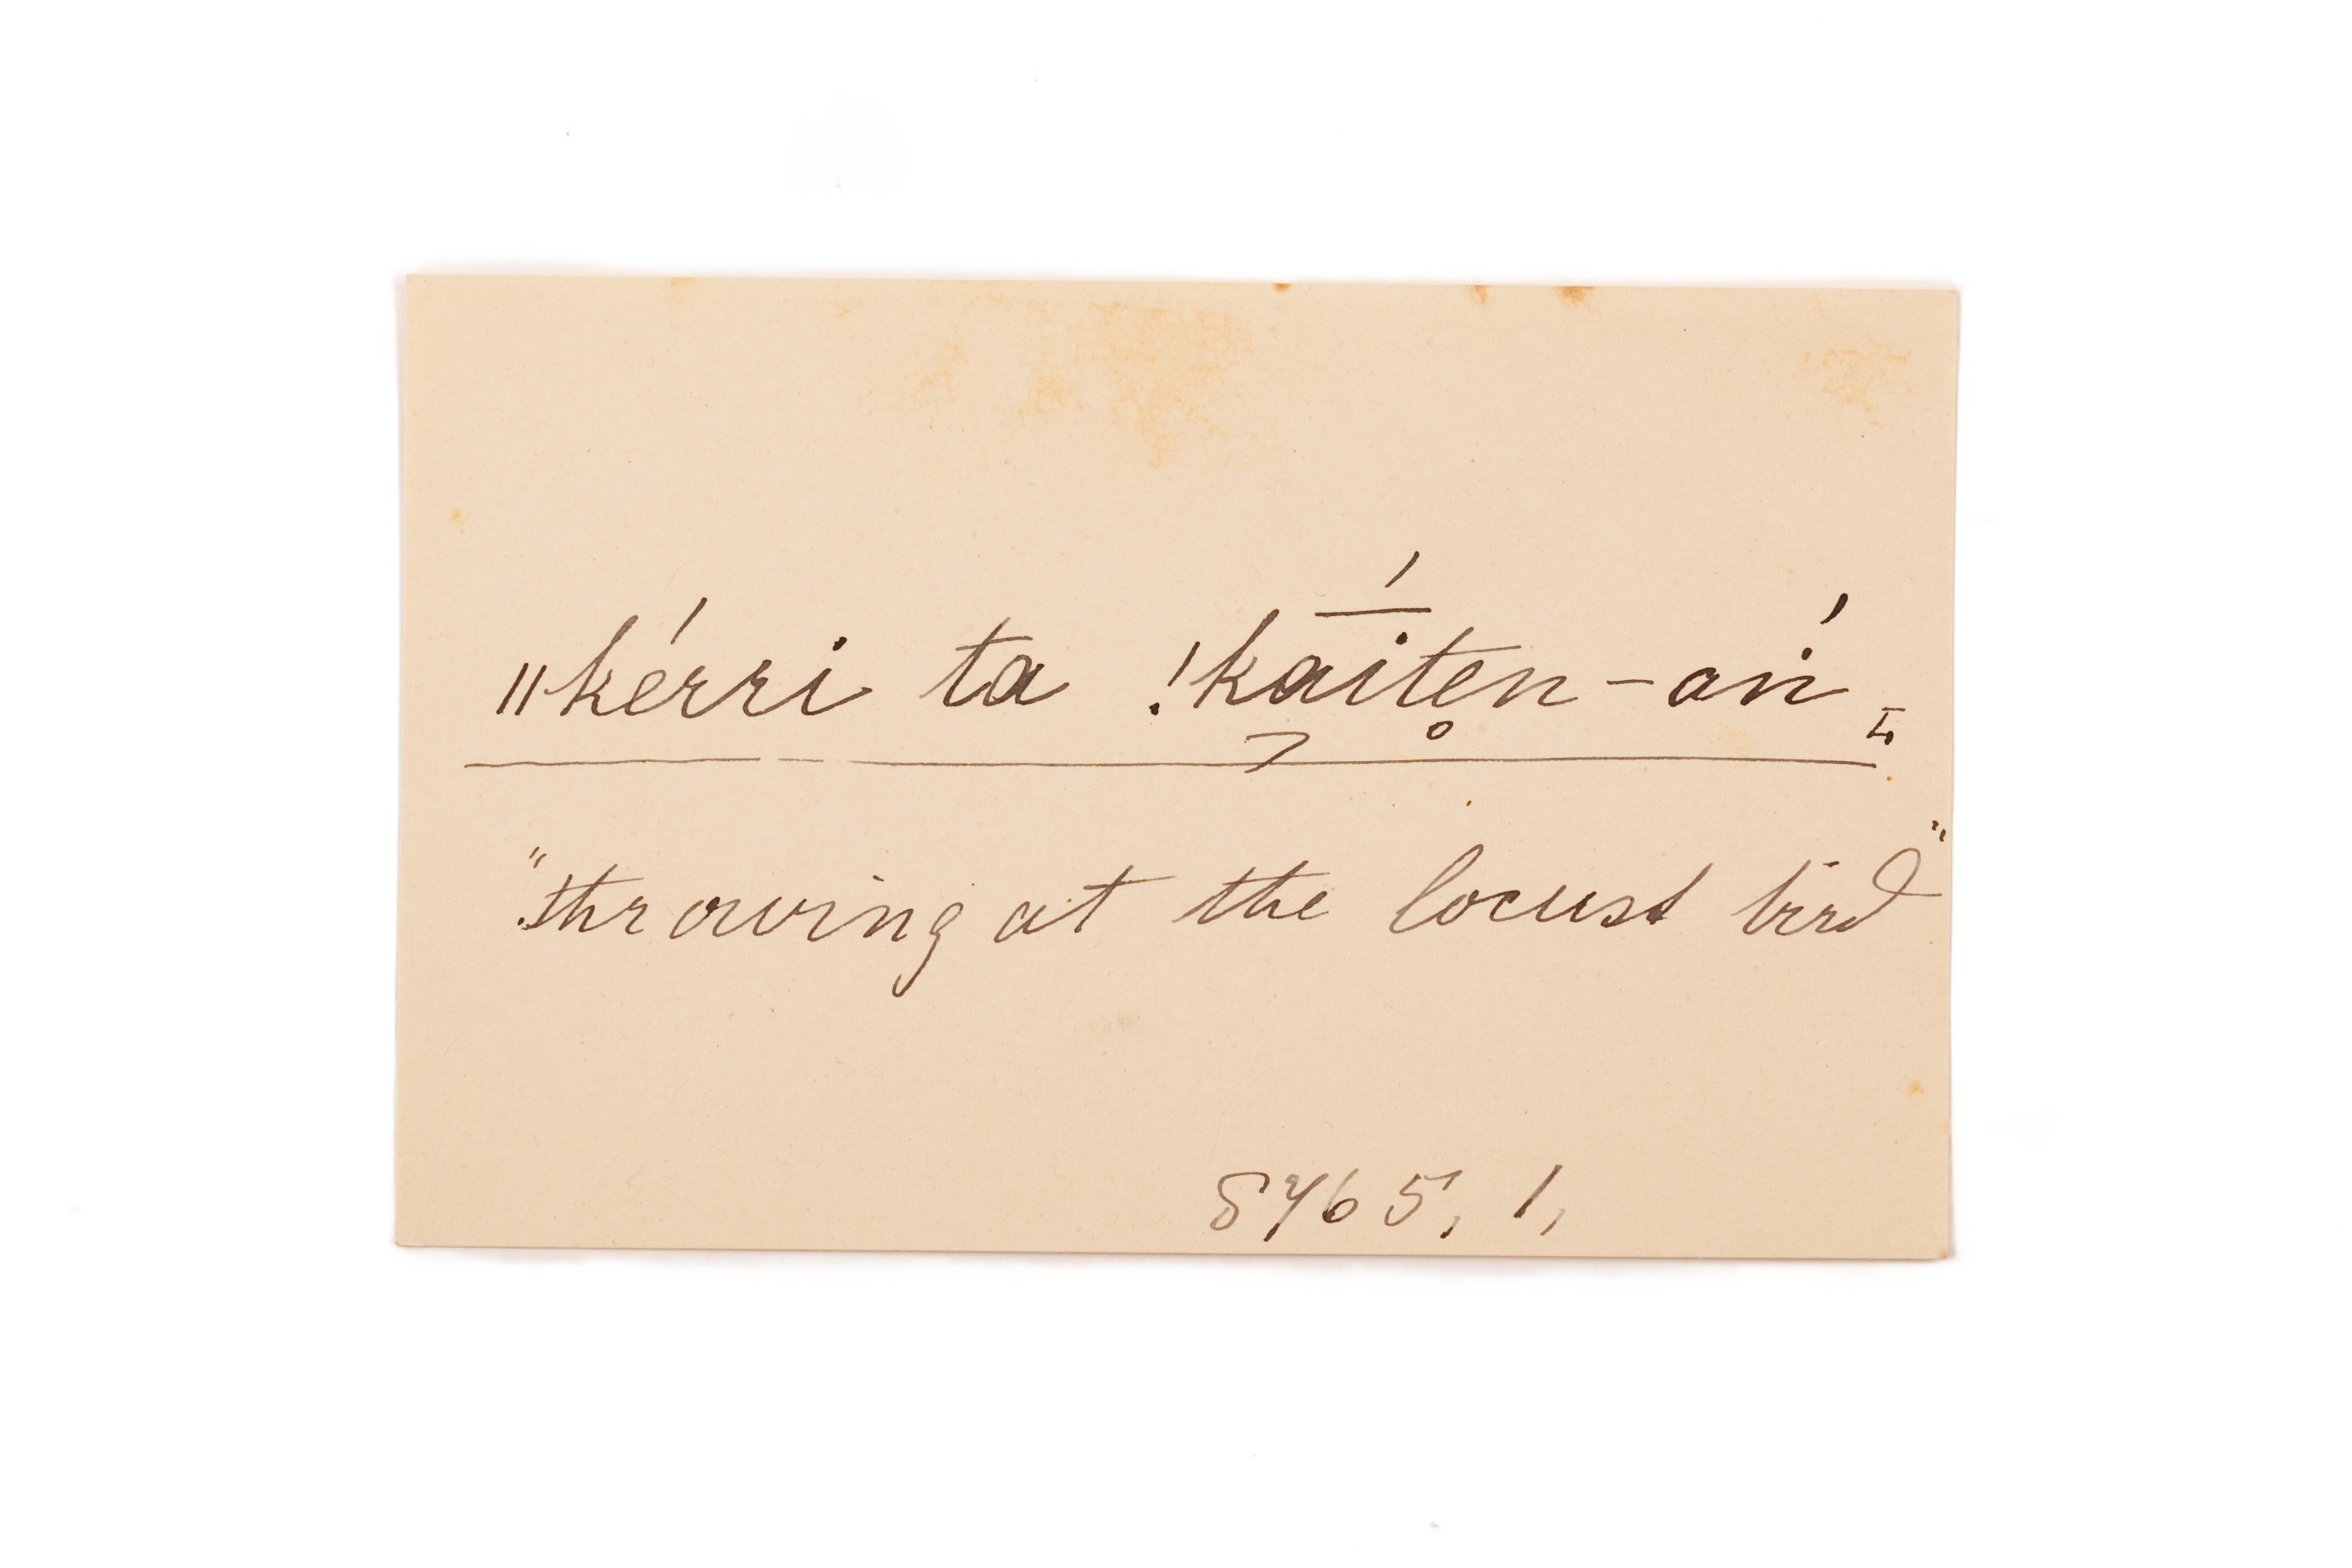 ǁkérri ta !k͔āíten̥-áṅ,
"throwing at the locust bird"
8465, 1,